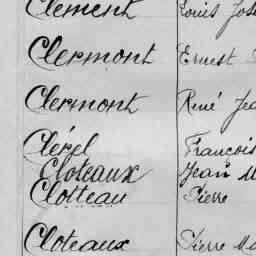 Clément Louis Jos
Clermont Ernest
Clermont René Jea
Clérel François
Cloteaux Jean M
Clotteau Pierre
Cloteaux Pierre Ma